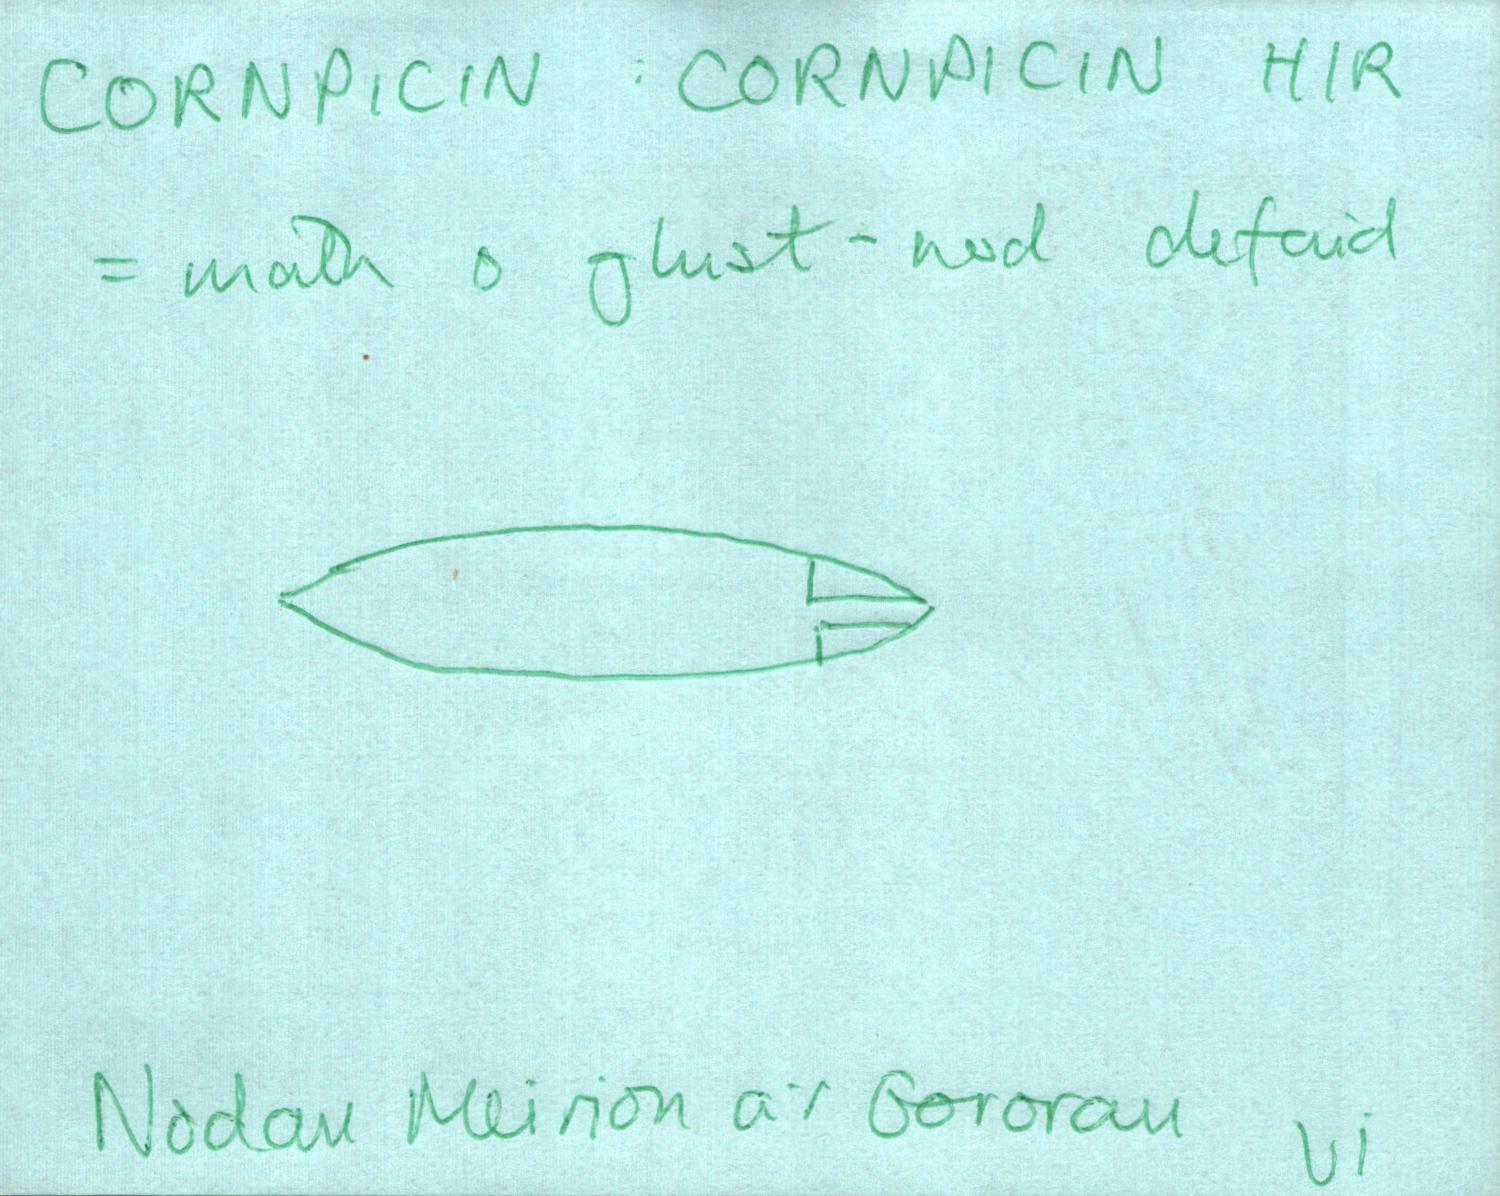 CORNPICIN : CORNPICIN HIR
= math o glust-nod defaid
Nodau Meirion a'r Gororau vi